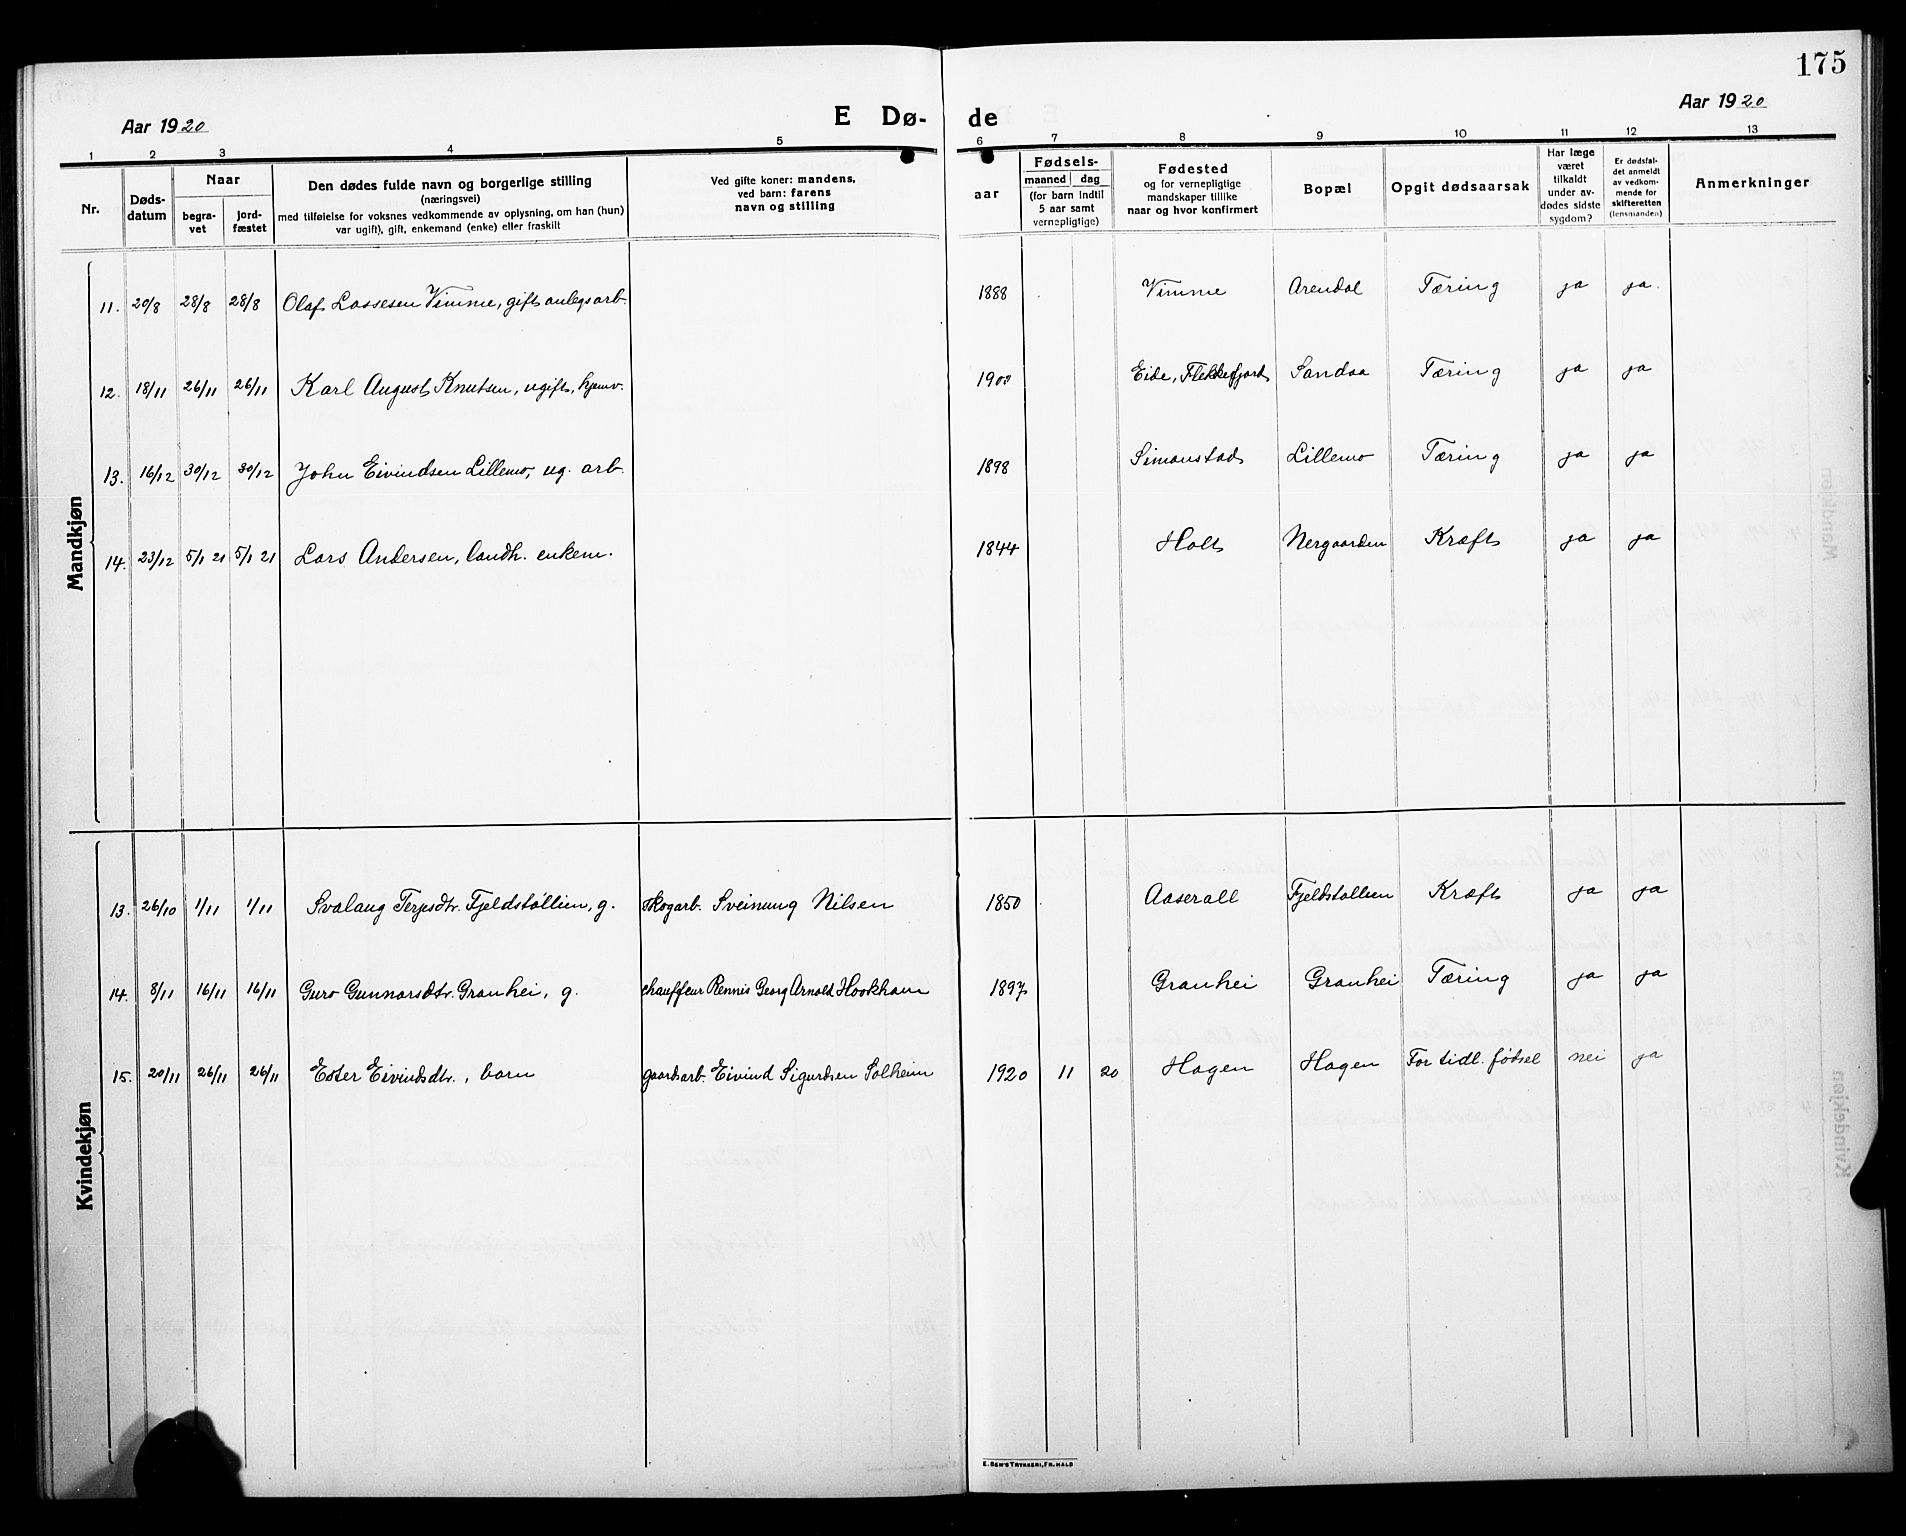 175
Aar 1920
E Dø-
de
Aar 1920
1 2 3 4 5 6 7 8 9 10 11 12 13
Nr.
Døds-
datum
Naar
begra-
vet
jord-
fæstet
Den dødes fulde navn og borgerlige stilling
(næringsvei)
med tilføielse for voksnes vedkommende av oplysning, om han (hun)
var ugift), gift, enkemand (enke) eller fraskilt
Ved gifte koner: mandens,
ved barn: farens
navn og stilling
aar
Fødsels-
maaned dag
(for barn indtil
5 aar samt
vernepligtige)
Fødested
og for vernepligtige
mandskaper tillike
naar og hvor konfirmert
Bopæl
Opgit dødsaarsak
Har læge
været
tilkaldt
under av-
dødes sidste
sygdom?
Er dødsfal-
det anmeldt
av vedkom-
mende for
skifteretten
(lensmanden)
Anmerkninger
Mandkjøn
11. 20/8 28/8 28/8 Olaf Lassesen Vimme, gift anlegsarb. 1888 Vimme Arendal Tæring ja ja.
12. 18/11 26/11 26/11 Karl August Knutsen, ugift, hjemv. 1900 Eide, Flekkefjord Sandaa Tæring ja ja
13. 16/12 30/12 30/12 John Eivindsen Lillemo, ug. arb. 1898 Simonstad Lillemo Tæring ja ja
14. 23/12 5/1 21 5/1 21 Lars Andersen, landh. enkem. 1844 Holt Nergaarden Kræft ja ja
Kvindekjøn
13. 26/10 1/11 1/11 Svalaug Terjesdtr. Fjeldstøllien, g. skogarb. Sveinung Nilsen 1850 Aaserall Fjeldstøllien Kræft ja ja
14. 8/11 16/11 16/11 Guro Gunnarsdtr. Granhei, g. chauffeur Rennis Georg Arnold Hookham 1897 Granhei Granhei Tæring ja ja
15. 20/11 26/11 26/11 Ester Eivindsdtr., barn gaardsarb. Eivind Sigurdsen Solheim 1920 11 20 Hagen Hagen For tidl. fødsel nei ja
E. SEM'S TRYKKERI, FR.HALD